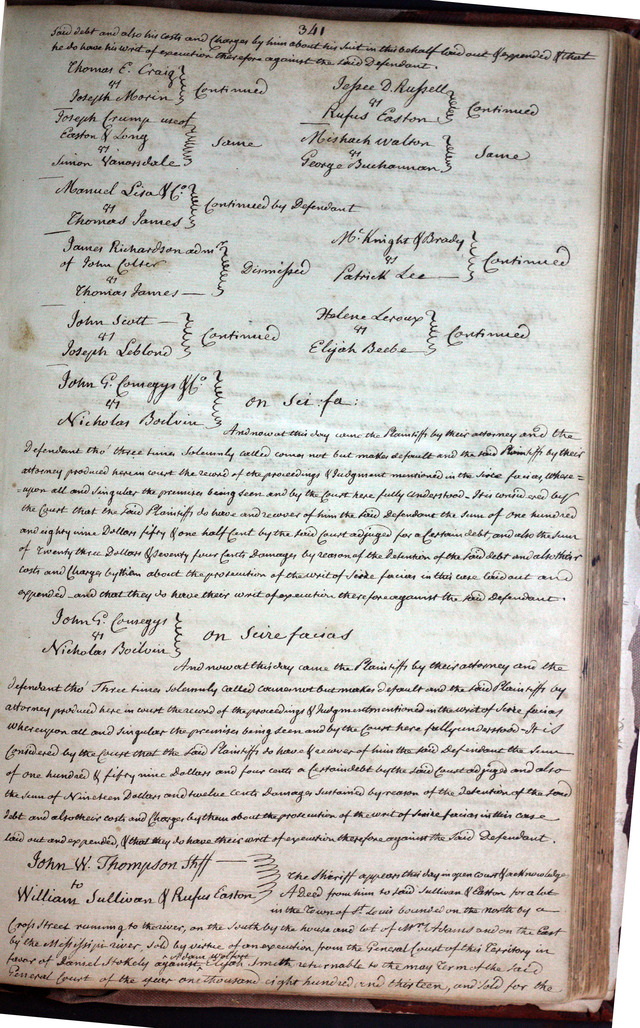 341
said debt and also his costs and Charges by him about his Suit in this behalf laid out & expended & that
he do have his writ of execution therefore against the said Defendant.
Thomas E. Craig
vs
Joseph Morin
Continued
Jessee D. Russell
vs
Rufus Easton
Continued
Joseph Crump use of
Easton & Long
vs
Simon Vanorsdale
Same
Mishach Walton
vs
George Buchannan
Same
Manuel Lisa & Co.
vs
Thomas James
Continued by Defendant
James Richardson admr.
of John Colter
vs
Thomas James
Dismissed
McKnight & Brady
vs
Patrick Lee
Continued
John Scott
vs
Joseph Leblond
Continued
Helene Leroux
vs
Elijah Beebe
Continued
John G. Comegys & Co.
vs
Nicholas Boilvin
on Sci: fa:
And now at this day came the Plaintiffs by their attorney and the
Defendant tho' three times Solemnly called comes not but makes default and the said Plaintiffs by their
attorney produced here in court the record of the proceedings & Judgment mentioned in the Scire facias, where=
upon all and singular the premises being seen and by the Court here fully understood. It is considered by
the Court that the said Plaintiffs do have and recover of him the said Defendant the Sum of one hundred
and eighty nine Dollars fifty & one half Cent by the said Court adjuged for a Certain debt, and also the sum
of Twenty three Dollars & seventy four Cents Damages by reason of the detention of the said debt and also their
costs and Charges by them about the prosecution of the writ of Scire facias in this case laid out and
expended and that they do have their writ of execution therefore against the said Defendant.
John G. Comegys
vs
Nicholas Boilvin
on Scire facias
And now at this day came the Plaintiffs by their attorney and the
defendant tho' Three times Solemnly called comes not but makes default and the said Plaintiffs by
attorney produced here in court the record of the proceedings & Judgment mentioned in the writ of Scire facias
whereupon all and Singular the premises being seen and by the Court here fully understood. It is
Considered by the Court that the said Plaintiffs do have & recover of him the said Defendant the Sum
of one hundred & fifty nine Dollars and four cents a Certain debt by the said Court adjuged and also
the sum of Nineteen Dollars and twelve Cents Damages Sustained by reason of the detention of the said
debt and also their costs and Charges by them about the prosecution of the writ of Scire facias in this case
laid out and expended, & that they do have their writ of execution therefore against the said Defendant.
John W. Thompson Shff
to
William Sullivan & Rufus Easton
The Sheriff appears this day in open Court & acknowledge
A deed from him to said Sullivan & Easton for a lot
in the Town of St. Louis bounded on the north by a
Cross Street running to the river, on the South by the house and lot of Mrs. Adams and on the East
by the Mississipi river sold by virtue of an execution from the General Court of this Territory in
Adam
favor of Daniel Stokely against Elijah Smith returnable to the may Term of the said
General Court of the year one thousand eight hundred and thirteen, and sold for the